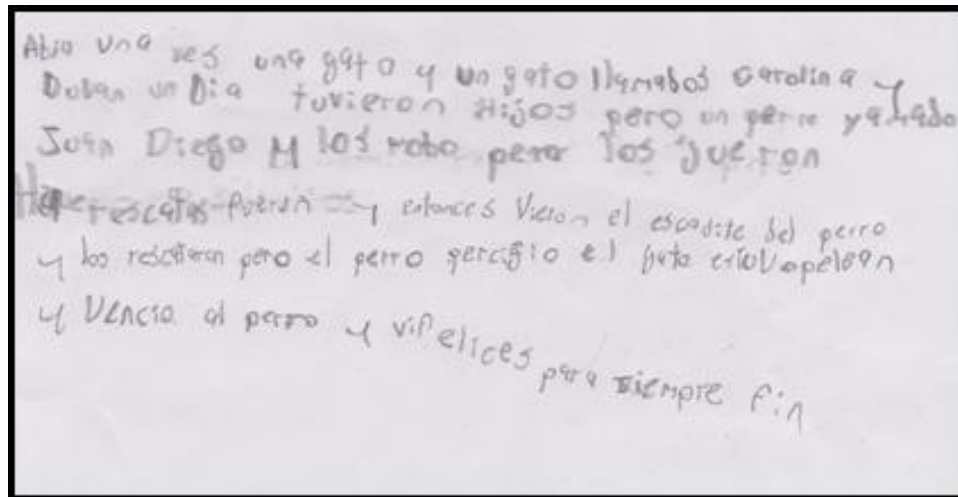 Abia una ves una gato y un gato llamabos carolina y
Duban un Dia tuvieron Hijos pero un perro yamado
Juan Diego y los robo pero los jueron
rescatas fueron y entonces vieron el escodite del perro
y los rescataron pero el perro persigio el gato
y vencio al perro y vifelices para siempre fin